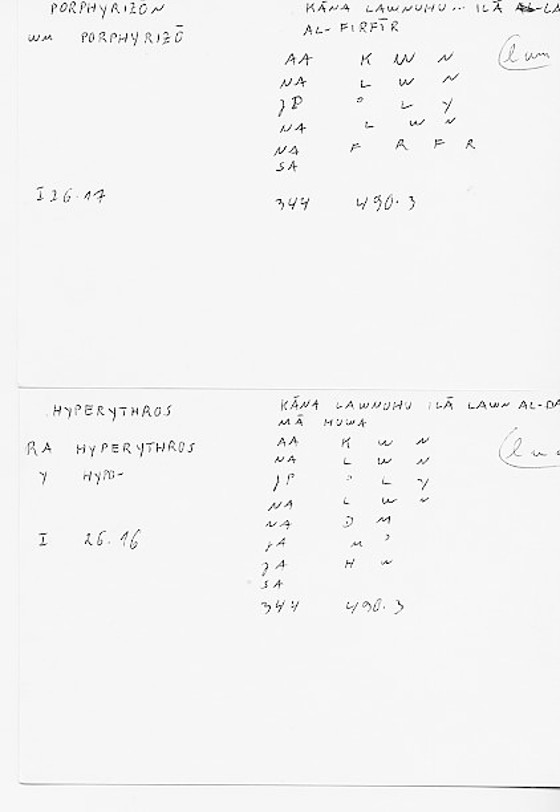 PORPHYRIZŌN KĀNA LAWNUHU... ILĀ AL-
WM PORPHYRIZŌ AL-FIRFĪR
AA K W N
NA L W N
JP ° L Y
NA L W N
NA F R F R
SA
I 26.17 344 490.3
HYPERYTHROS KĀNA LAWNUHU ILĀ LAWN AL-DA
MĀ HUWA
RA HYPERYTHROS AA K W N
NA L W N
Y HYPO- JP ° L Y
NA L W N
NA D M
I 26.16 JA M °
JA H W
SA
344 490.3